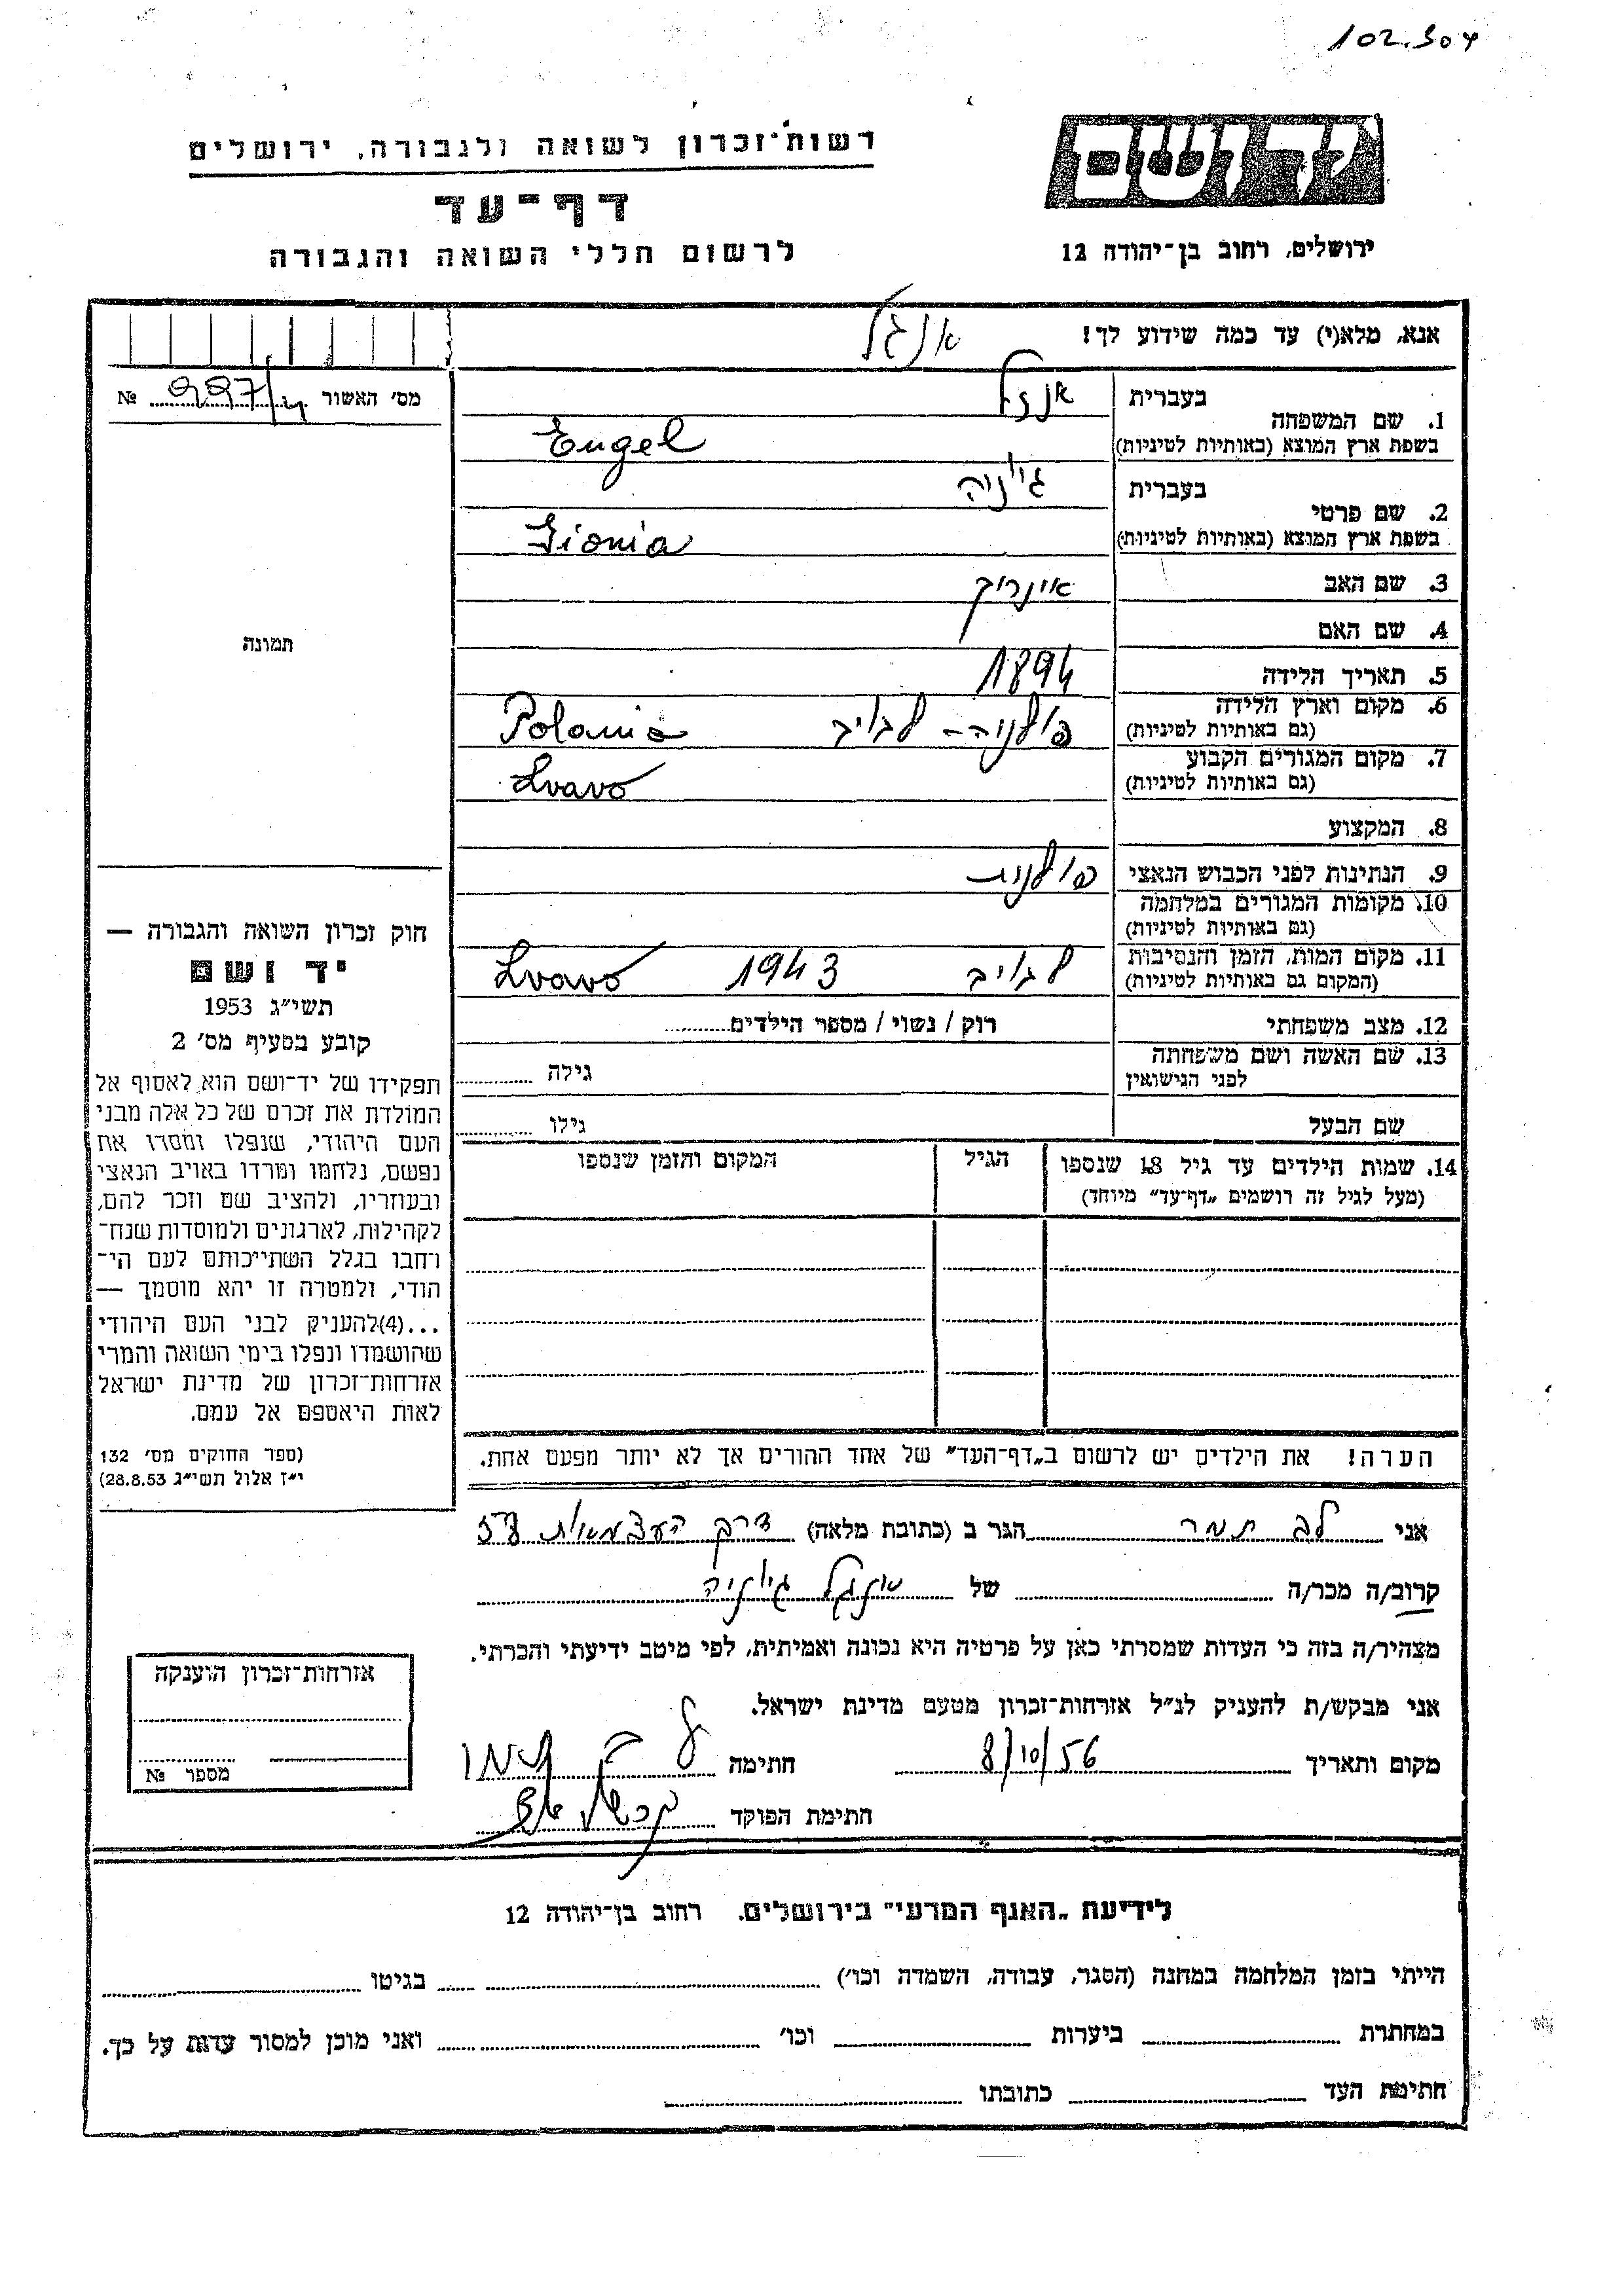 102.304
יד ושם
רשות־זכרון לשואה ולגבורה, ירושלים
דף־עד
לרשום חללי השואה והגבורה
ירושלים, רחוב בן־יהודה 12
אנא, מלא(י) עד כמה שידוע לך!
אנגל
מס׳ האשור №
1. שם המשפחה
בעברית אנגל
בשפת ארץ המוצא (באותיות לטיניות) Engel
2. שם פרטי
בעברית ג׳וניה
בשפת ארץ המוצא (באותיות לטיניות)
3. שם האב
4. שם האם
5. תאריך הלידה 1894
6. מקום וארץ הלידה פולניה - לבוב Polania
(גם באותיות לטיניות)
7. מקום המגורים הקבוע Lvavo
(גם באותיות לטיניות)
8. המקצוע
9. הנתינות לפני הכבוש הנאצי פולנית
10. מקומות המגורים במלחמה
(גם באותיות לטיניות)
11. מקום המות, הזמן והנסיבות 1943 Lvavo
(המקום גם באותיות לטיניות)
12. מצב משפחתי רוק / נשוי / מספר הילדים
13. שם האשה ושם משפחתה גילה
לפני הנישואין
שם הבעל גילו
14. שמות הילדים עד גיל 18 שנספו הגיל המקום והזמן שנספו
(מעל לגיל זה רושמים „דף־עד” מיוחד)
הערה! את הילדים יש לרשום ב„דף־העד” של אחד ההורים אך לא יותר מפעם אחת.
תמונה
חוק זכרון השואה והגבורה —
יד ושם
תשי״ג 1953
קובע בסעיף מס׳ 2
תפקידו של יד־ושם הוא לאסוף אל
המולדת את זכרם של כל אלה מבני
העם היהודי, שנפלו ומסרו את
נפשם, נלחמו ומרדו באויב הנאצי
ובעוזריו, ולהציב שם וזכר להם,
לקהילות, לארגונים ולמוסדות שנח־
רחבו בגלל השתייכותם לעם הי־
הודי, ולמטרה זו יהא מוסמך —
...(4)להעניק לבני העם היהודי
שהושמדו ונפלו בימי השואה והמרי
אזרחות־זכרון של מדינת ישראל
לאות היאספם אל עמם.
(ספר החוקים מס׳ 132
י״ז אלול תשי״ג 28.8.53)
אני לב תמר הגר ב (כתובת מלאה) דרך העצמאות
קרוב/ה מכר/ה של אנגל ג׳וניה
מצהיר/ה בזה כי העדות שמסרתי כאן על פרטיה היא נכונה ואמיתית, לפי מיטב ידיעתי והכרתי.
אני מבקש/ת להעניק לנ״ל אזרחות־זכרון מטעם מדינת ישראל.
מקום ותאריך 8/10/56 חתימה לב תמר
חתימת הפוקד
אזרחות־זכרון הוענקה
מספר №
לידיעת „האגף המדעי” בירושלים. רחוב בן־יהודה 12
הייתי בזמן המלחמה במחנה (הסגר, עבודה, השמדה וכו׳) בגיטו
במחתרת ביערות וכו׳ ואני מוכן למסור עדות על כך.
חתימת העד כתובתו